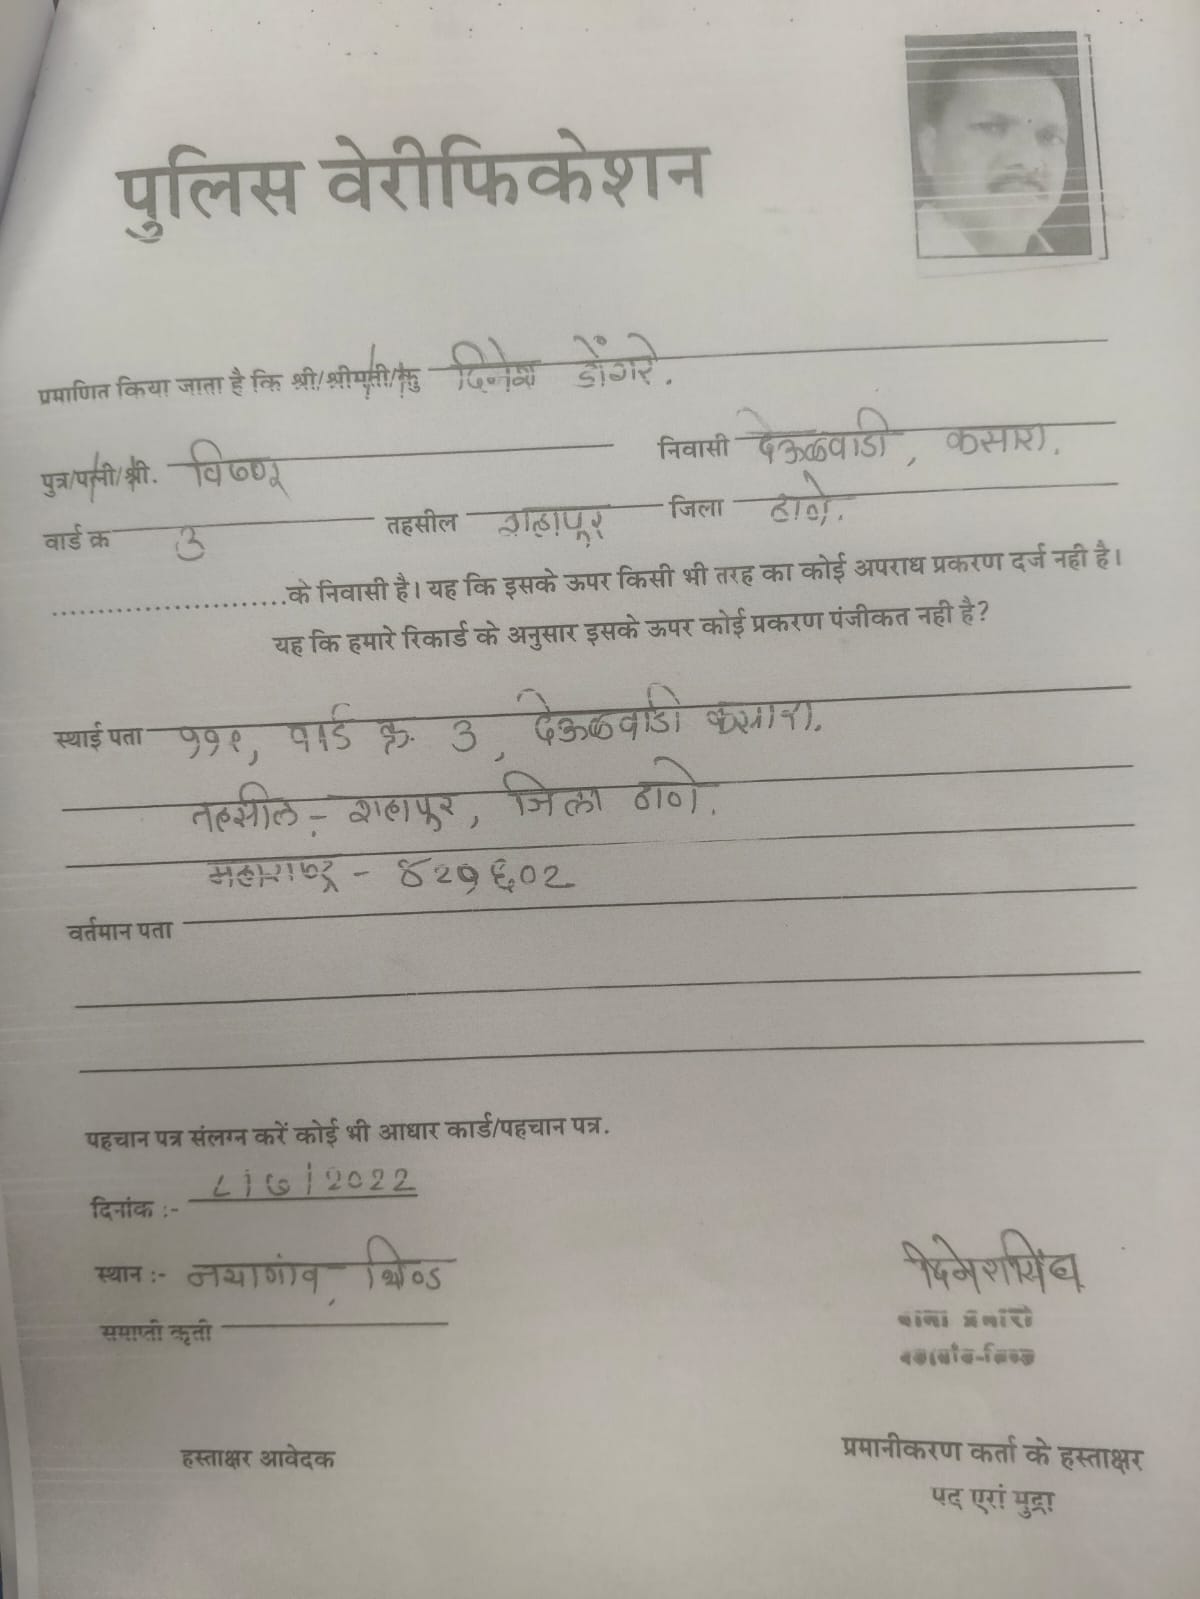 पुलिस वेरीफिकेशन
प्रमाणित किया जाता है कि श्री/श्रीमती/कु दिनेश डोंगरे.
पुत्र/पत्नी/श्री. विष्णू निवासी देऊळवाडी, कसारा.
वार्ड क्र 3 तहसील शहापूर जिला ठाणे.
........................के निवासी है। यह कि इसके ऊपर किसी भी तरह का कोई अपराध प्रकरण दर्ज नही है।
यह कि हमारे रिकार्ड के अनुसार इसके ऊपर कोई प्रकरण पंजीकत नही है?
स्थाई पता ११२, वार्ड क्र. 3, देऊळवाडी कसारा.
तहसील - शहापूर, जिला ठाणे.
महाराष्ट्र - ४२१६०२
वर्तमान पता
पहचान पत्र संलग्न करें कोई भी आधार कार्ड/पहचान पत्र.
दिनांक :- ८/७/2022
स्थान :- नयागांव, भिण्ड
दिनेशसिंह
समाप्ती कृती
थाना प्रभारी
हस्ताक्षर आवेदक
प्रमानीकरण कर्ता के हस्ताक्षर
पद एरां मुद्रा